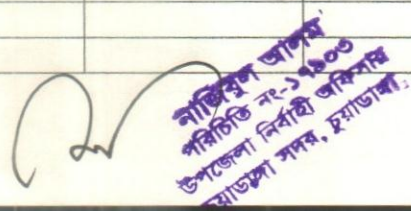 নাজিবুল আলম
পরিচিতি নং-১৭৯০৩
উপজেলা নির্বাহী অফিসার
য়াডাঙ্গা সদর, চুয়াডাঙ্গা।